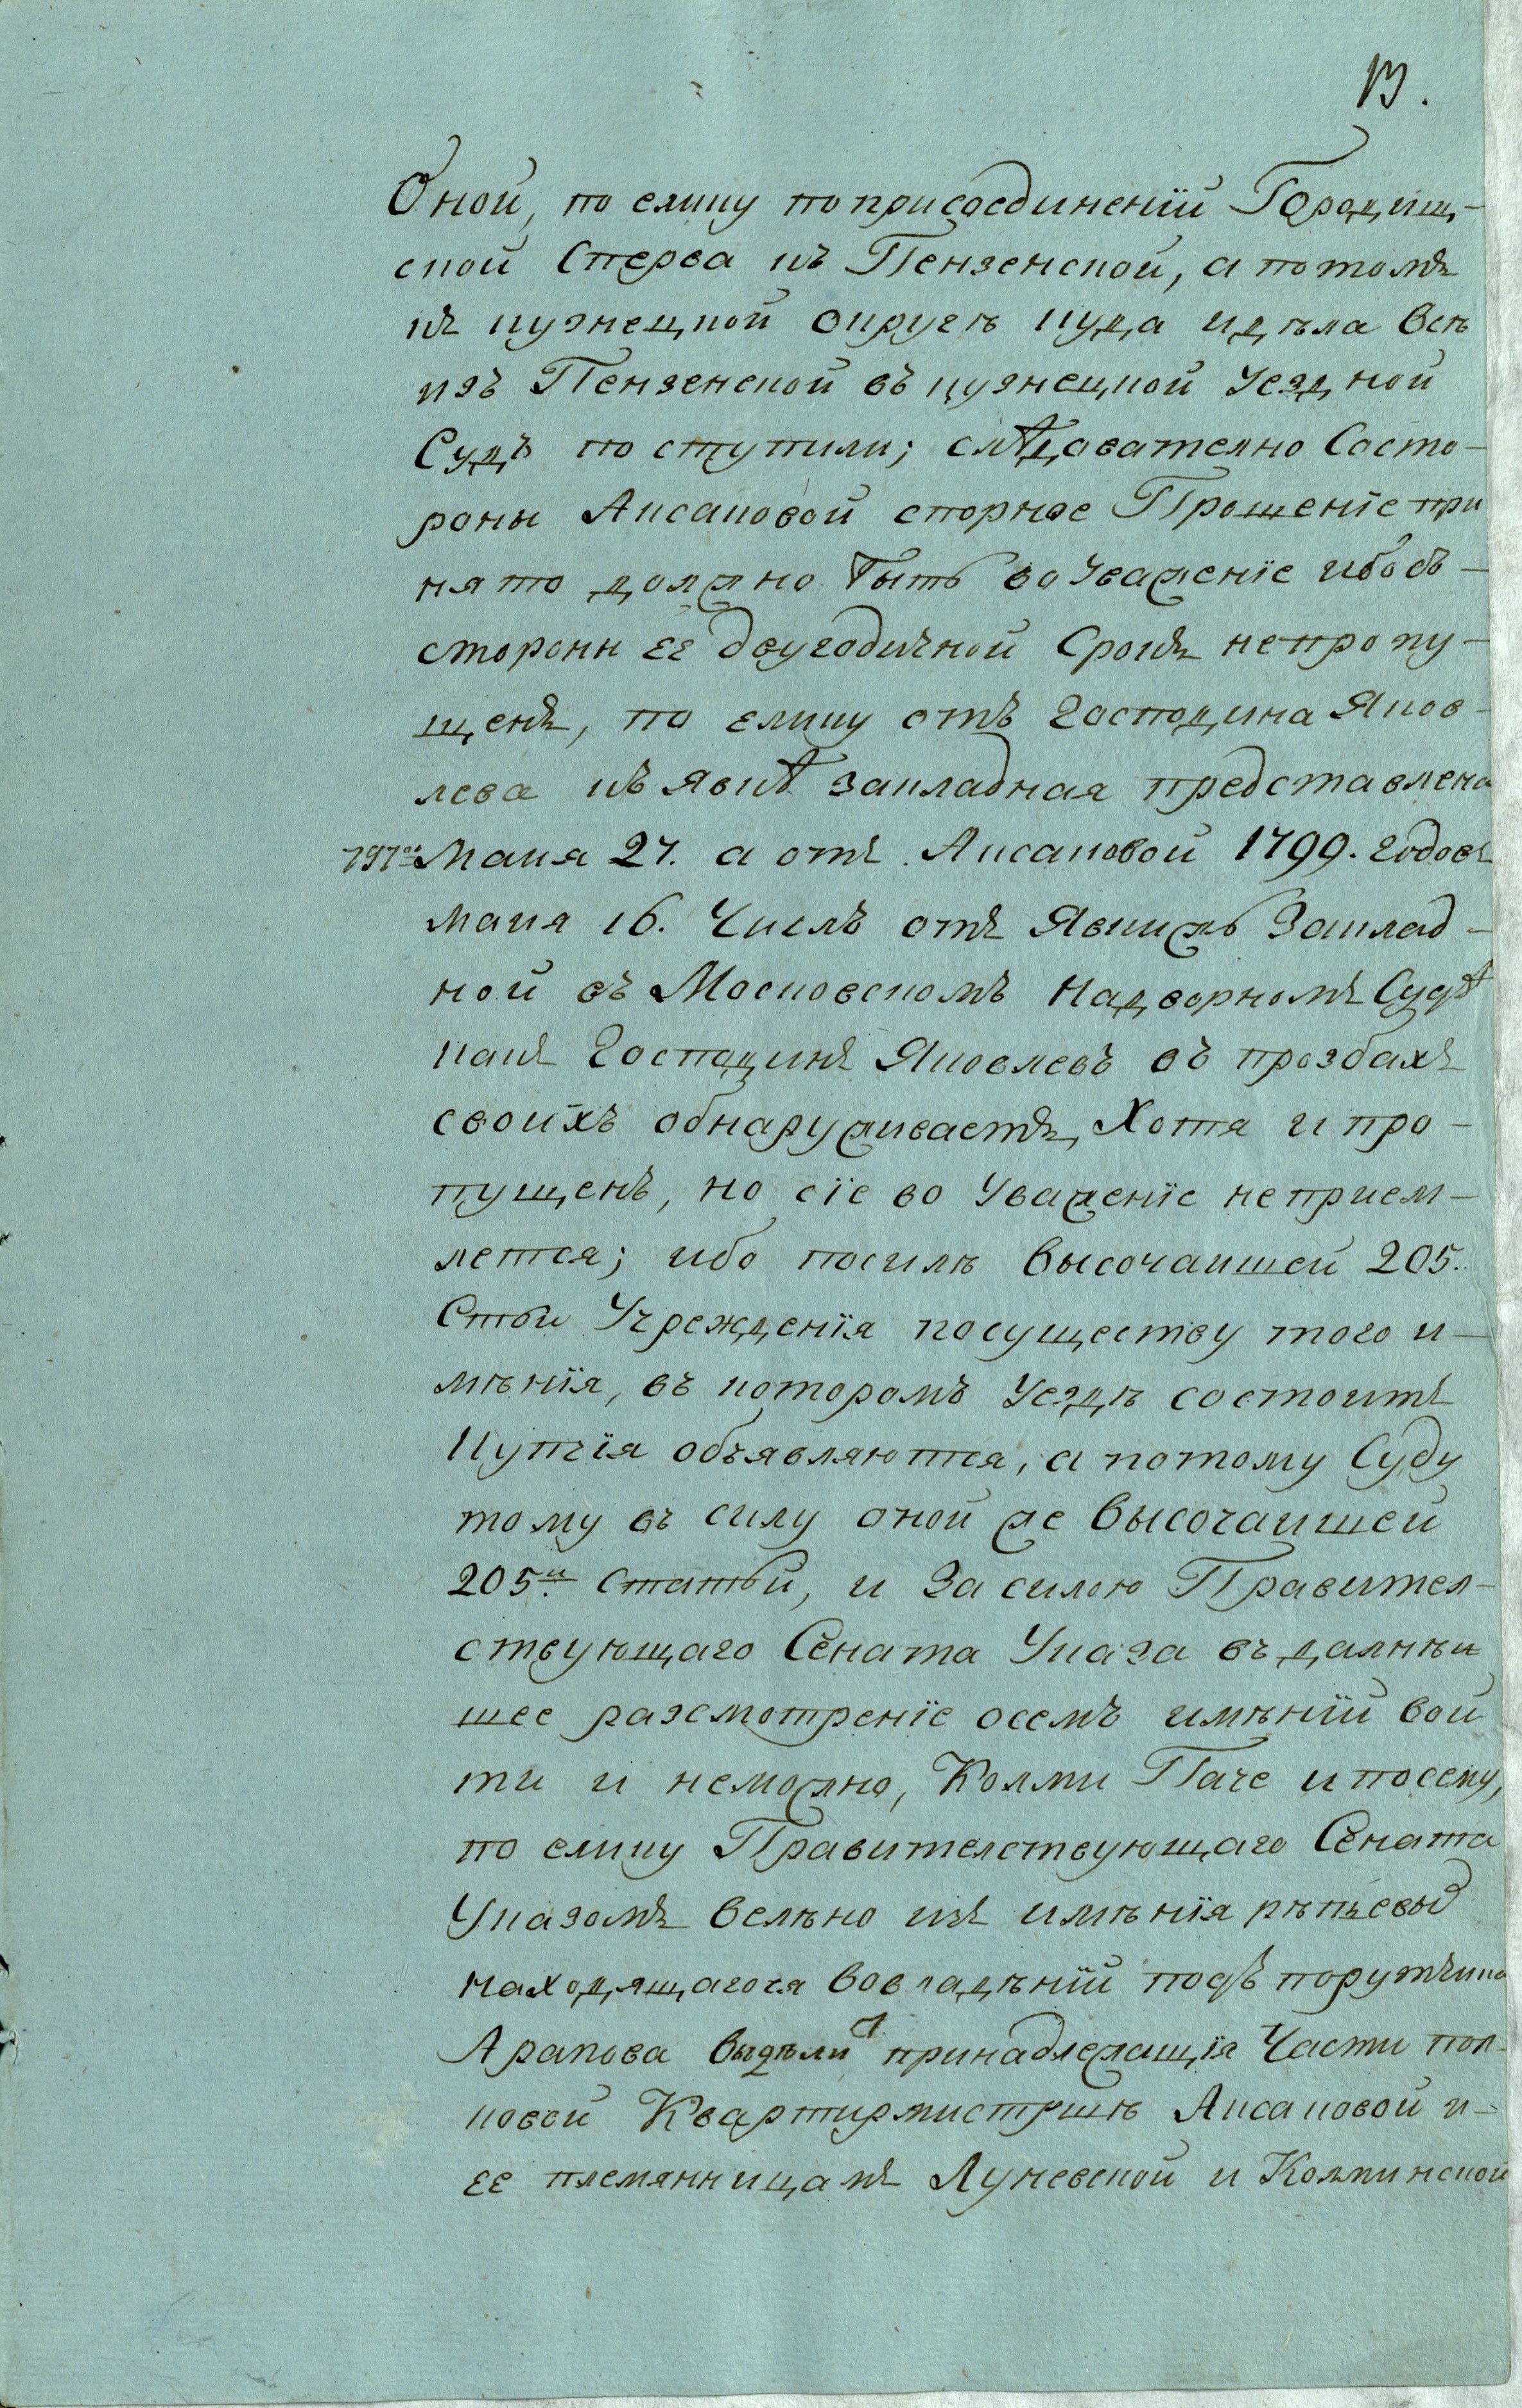 13.
Оной, по елику поприсоединенїи Городищ-
ской сперва къ Пензенской, а потомъ
къ кузнецкой округѣ куда идѣла всѣ
изъ Пензенской въ кузнецкой уездной
Судъ поступили; слѣдователно Состо-
роны Аксаковой спорное Прошенїе при
нято должно быть во уваженїе ибосъ-
стороны ее двугодичной Срокъ непропу-
щенъ, по елику отъ господина Яков-
лева къ явкѣ закладная представлена
797го Маия 27. а отъ Аксаковой 1799. годовъ
маия 16. Числъ отъ Явкижъ Заклад-
ной въ Московскомъ Надворномъ Судѣ
какъ Господинъ Яковлевъ въ прозбахъ
своихъ обнаруживаетъ, Хотя и про-
пущенъ, но сїе во Уваженїе неприем-
лется; ибо посилѣ высочаишей 205.
Стьи Учрежденїя посуществу того и-
мѣнїя, въ которомъ уездѣ состоитъ
Купчїя объявляются, а потому Суду
тому въ силу оной же Высочаишей
205й статьи, и За силою Правител-
ствующаго Сената Указа въ далнѣи
шее разсмотренїе осемъ имѣнїи вои
ти и неможно, Колми Паче ипосему,
по елику Правителствующаго Сената
Указомъ велѣно изъ имѣнїя рѣпьевыѣ
находящагося вовладѣнїи подъ порутчика
Арапова выдѣля принадлежащїя Части пол-
ковой Квартирмистршѣ Аксаковой и-
ее племянницамъ Луневской и Колпинской